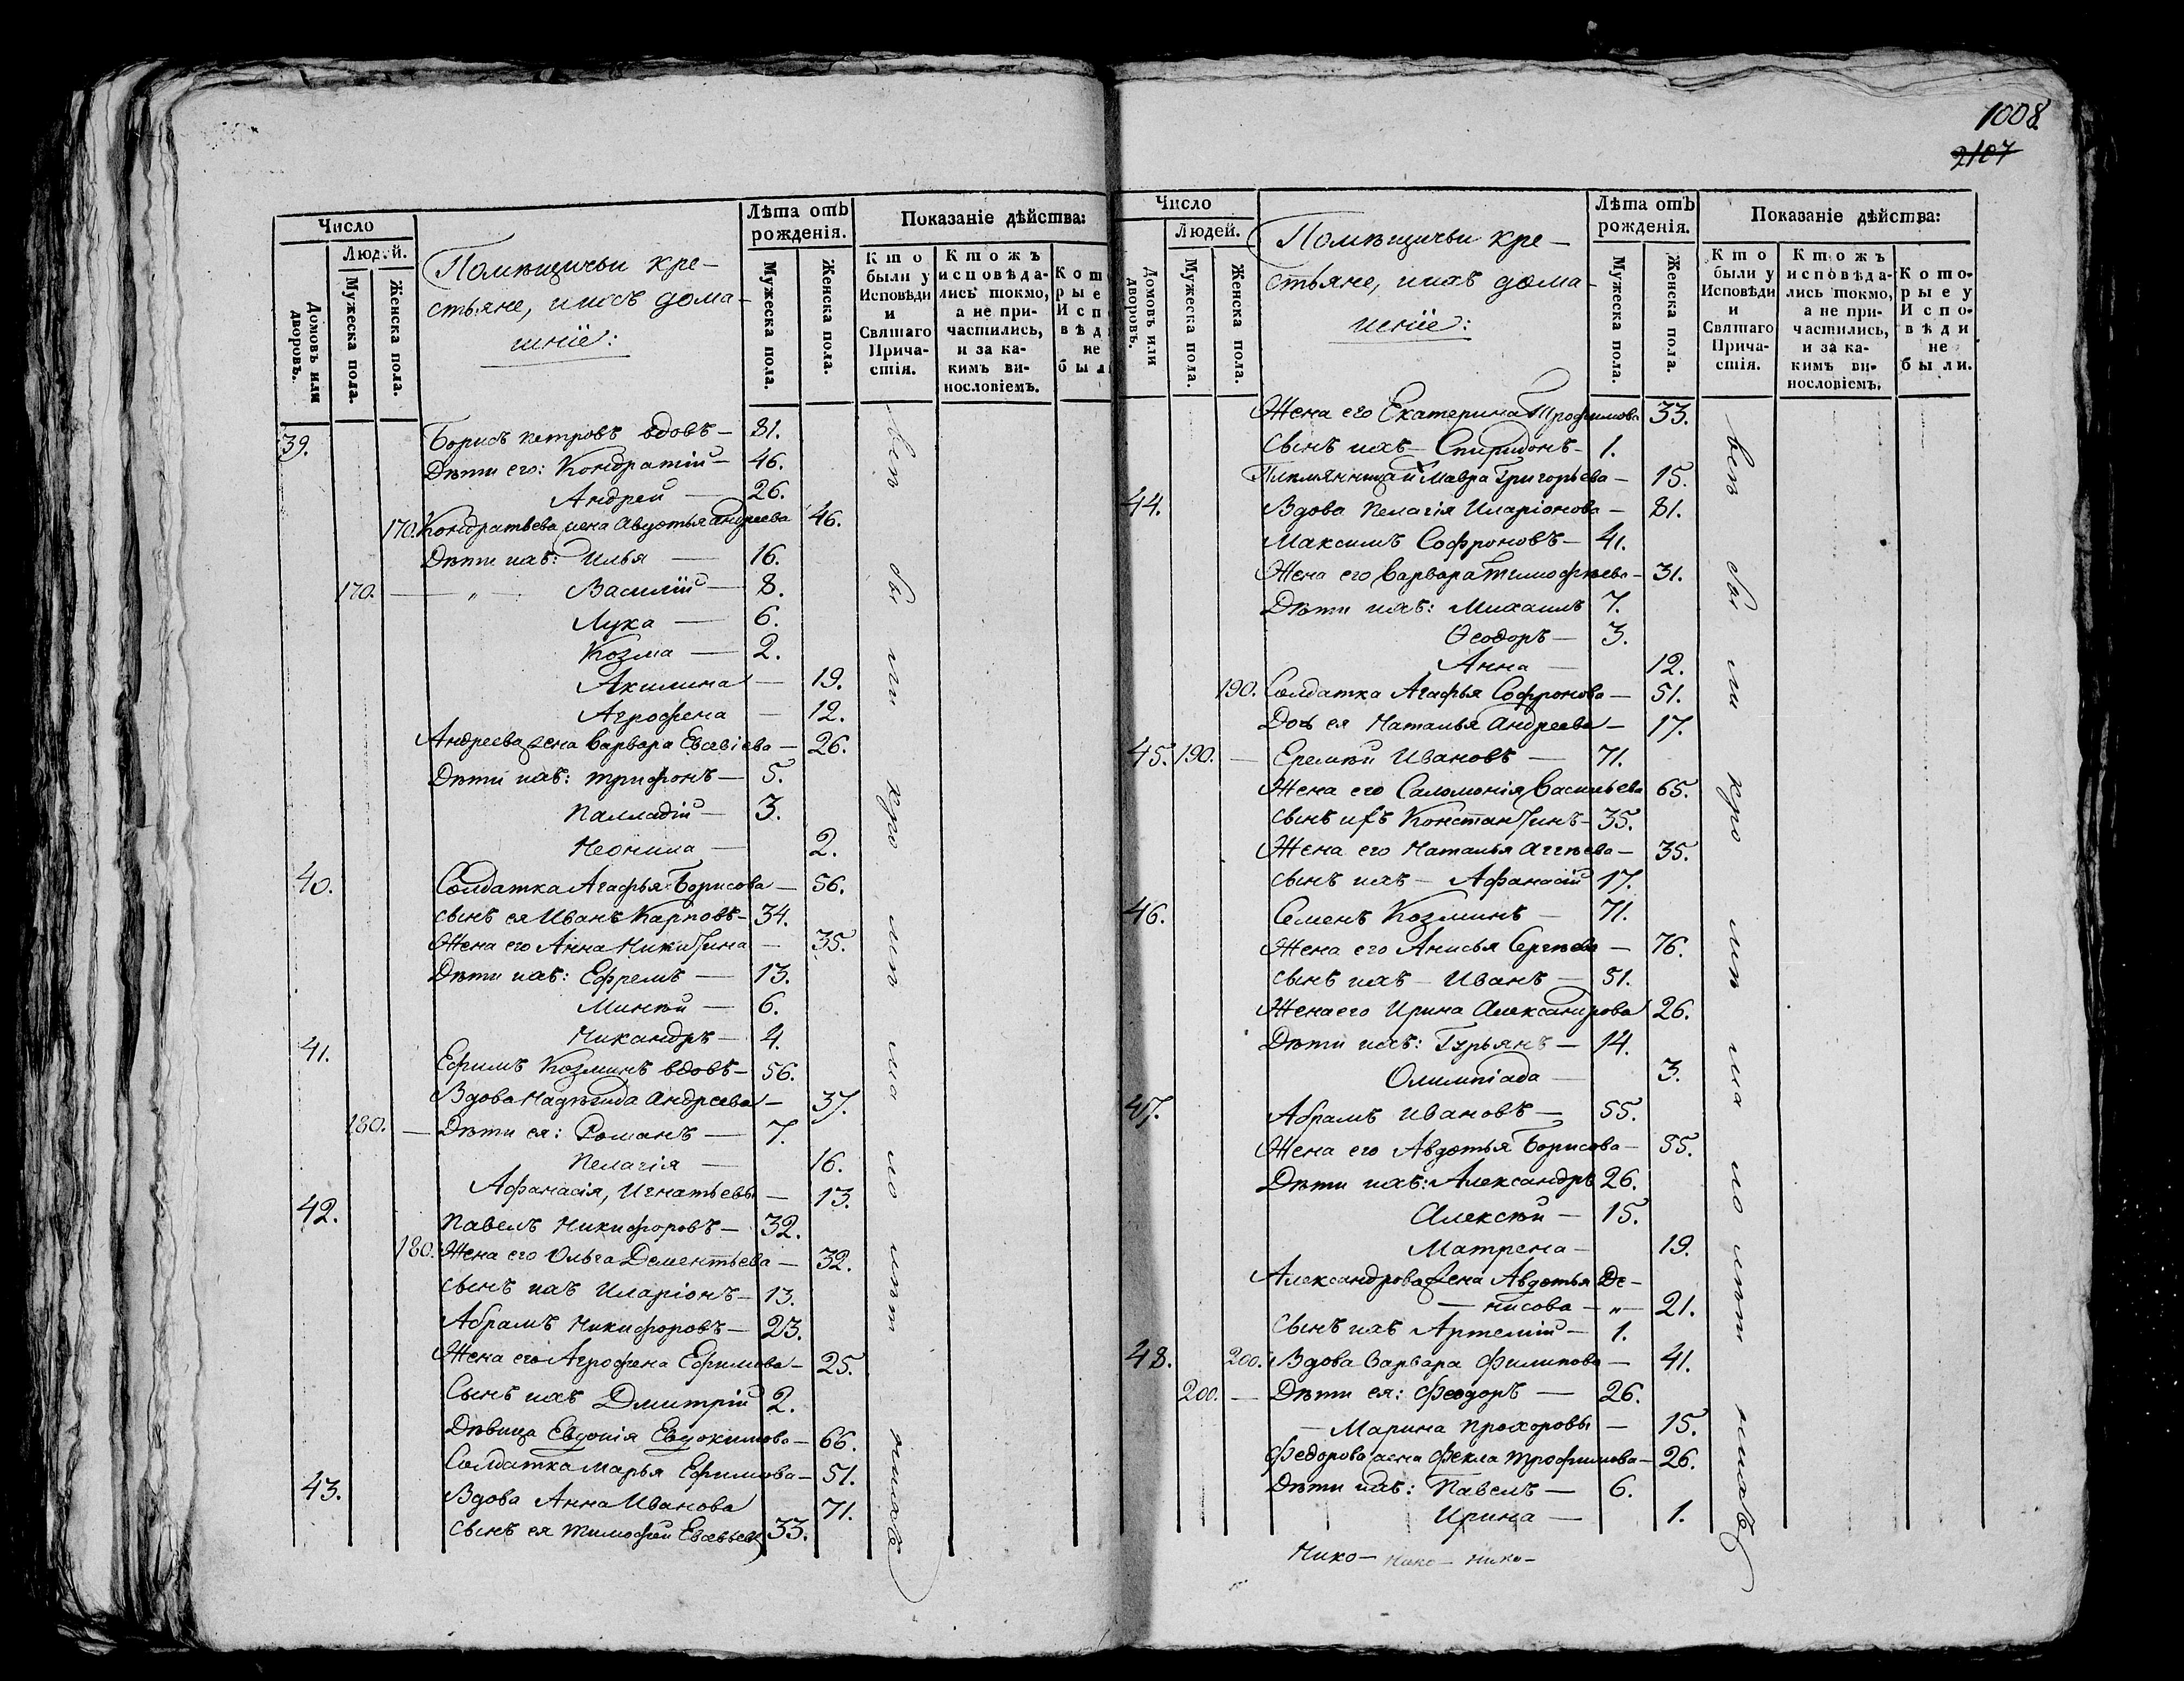 Число
Людей.
Домовъ или дворовъ.
Мужеска пола.
Женска пола.
Помѣщичьи кре-
стьяне, ихъ дома-
шніе:
Лѣта отъ
рожденія.
Мужеска пола.
Женска пола.
Показаніе дѣйства:
Кто были у Исповѣди и Святаго Прича- стія.
Ктожъ исповѣда- лись токмо, а не при- частились, и за ка- кимъ ви- нословіемъ.
39. Борисъ Петровъ вдовъ — 81.
Дѣти его: Кондратій — 46.
Андрей — 26.
170. Кондратьева жена Авдотья Андреева 46.
Дѣти ихъ: Илья — 16.
170. — „ — Василій — 8.
Лука — 6.
Козма — 2.
Акилина — 19.
Агрофена — 12.
Андреева жена Варвара Евсевіева — 26.
Дѣти ихъ: Трифонъ — 5.
Палладій — 3.
Неонила — 2.
40. Солдатка Агафья Борисова — 56.
Сынъ ея Иванъ Карповъ — 34.
Жена его Анна Никитина — 35.
Дѣти ихъ: Ефремъ — 13.
Минѣй — 6.
Никандръ — 4.
41. Ефимъ Козминъ вдовъ — 56.
Вдова Надѣжда Андреева — 37.
180. — Дѣти ея: Романъ — 7.
Пелагія — 16.
Афанасія, Игнатьевы — 13.
42. Павелъ Никифоровъ — 32.
180. Жена его Ольга Дементьева — 32.
Сынъ ихъ Иларіонъ — 13.
Абрамъ Никифоровъ — 23.
Жена его Агрофена Ефимова — 25.
Сынъ ихъ Дмитрій 2.
Дѣвица Евдокія Евдокимова — 66.
Солдатка Марья Ефимова — 51.
43. Вдова Анна Иванова 71.
Сынъ ея Тимофей Евсевьевъ 33.
1008.
2107
Число
Людей.
Домовъ или дворовъ.
Мужеска пола.
Женска пола.
Помѣщичьи кре-
стьяне, ихъ дома-
шніе:
Лѣта отъ
рожденія.
Мужеска пола.
Женска пола.
Показаніе дѣйства:
Кто были у Исповѣди и Святаго Прича- стія.
Ктожъ исповѣда- лись токмо, а не при- частились, и за ка- кимъ ви- нословіемъ.
Кото- рые у Испо- вѣди не были.
Жена его Екатерина Трофимова 33.
Сынъ ихъ — Спиридонъ — 1.
Племянница Мавра Григорьева — 15.
44. Вдова Пелагія Иларіонова — 81.
Максимъ Софроновъ — 41.
Жена его Варвара Тимофѣева — 31.
Дѣти ихъ: Михаилъ 7.
Ѳеодоръ — 3.
Анна — 12.
190. Солдатка Агафья Софронова — 51.
Дочь ея Наталья Андреева — 17.
45. 190. — Еремѣй Ивановъ — 71.
Жена его Саломонія Васильева 65.
Сынъ ихъ Константинъ — 35.
Жена его Наталья Аггѣева — 35.
Сынъ ихъ — Афанасій 17.
46. Семенъ Козминъ — 71.
Жена его Анисья Сергѣева — 76.
Сынъ ихъ — Иванъ — 51.
Жена его Ирина Александрова 26.
Дѣти ихъ: Гурьянъ — 14.
Олимпіада — 3.
47. Абрамъ Ивановъ — 55.
Жена его Авдотья Борисова — 55.
Дѣти ихъ: Александръ 26.
Алексѣй — 15.
Матрена — 19.
Александрова жена Авдотья Де-
— нисова — „ — 21.
Сынъ ихъ Артемій — 1.
48. 200. Вдова Варвара Филипова — 41.
200. — Дѣти ея: Феодоръ — 26.
— Марина Прохоровы — 15.
Федорова жена Фекла Трофимова — 26.
Дѣти ихъ: Павелъ — 6.
Ирина — 1.
Нико — Нико — Нико —